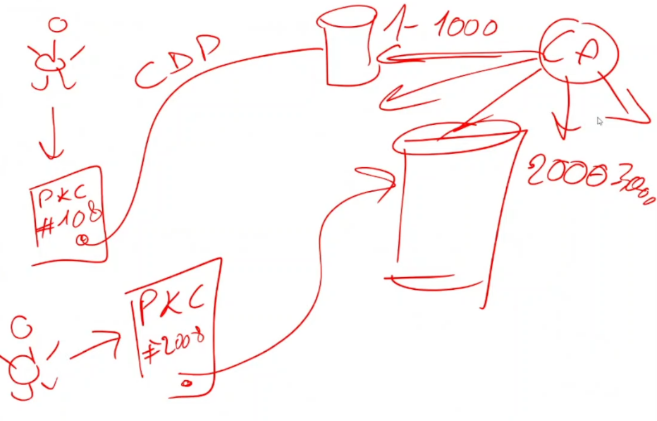 1-1000
CA
CDP
PKC
#108
2000
3000
PKC
#2008